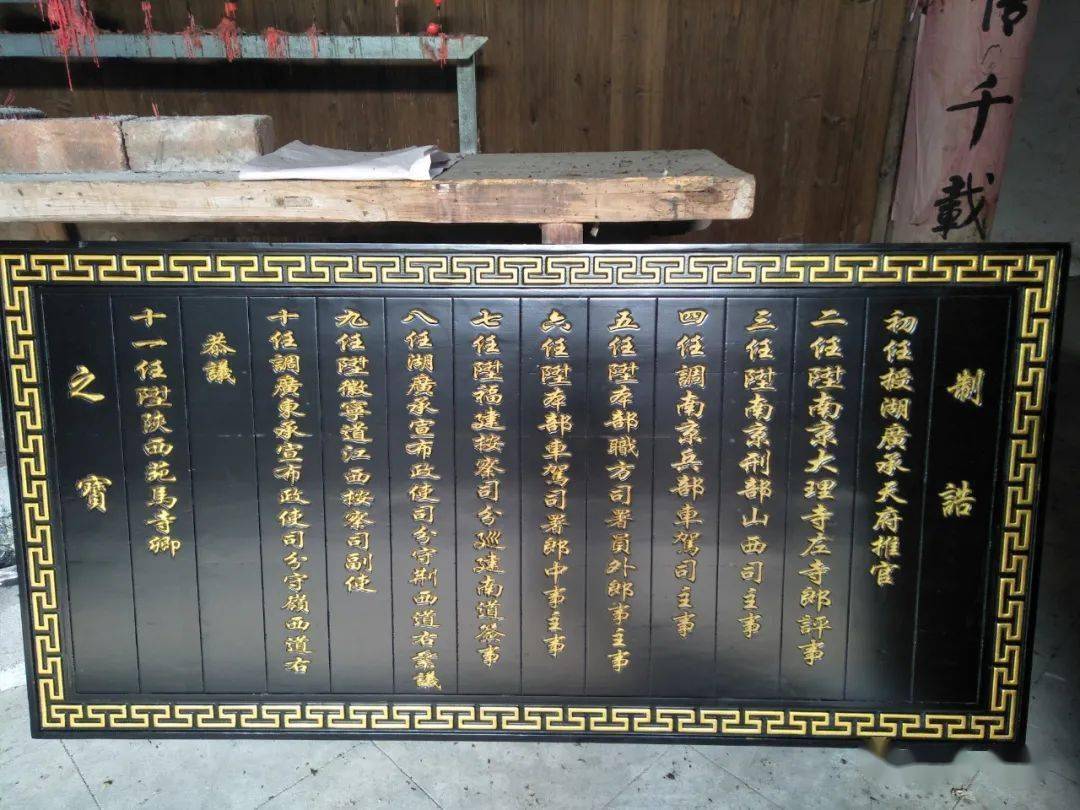 制誥
初任授湖廣承天府推官
二任陞南京大理寺左寺郎評事
三任陞南京刑部山西司主事
四任調南京兵部車駕司主事
五任陞本部職方司署員外郎事主事
六任陞本部車駕司署郎中事主事
七任陞福建按察司分廵建南道簽事
八任湖廣承宣布政使司分守荆西道右叅議
九任陞徽寧道江西按察司副使
十任調廣東承宣布政使司分守嶺西道右
恭議
十一任陞陝西苑馬寺卿
之寳
千載